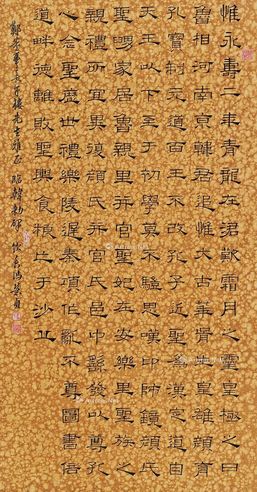 惟永壽二年青龍在涒歎霜月之靈皇極之日
魯相河南京韓君追惟大古華胥生皇雄顏育
孔寶制元道百王不改孔子近聖為漢定道自
天王以下至于初學莫不驖思嘆卬師鏡顏氏
聖舅家居魯親里并官聖妃在安樂里聖族之
親禮所宜異復顏氏并官氏邑中繇發以尊孔
心念聖歷世禮樂陵遲秦項作亂不尊圖書倍
道畔德離敗聖輿食糧亡于沙丘
先生雅正 臨韓勑碑